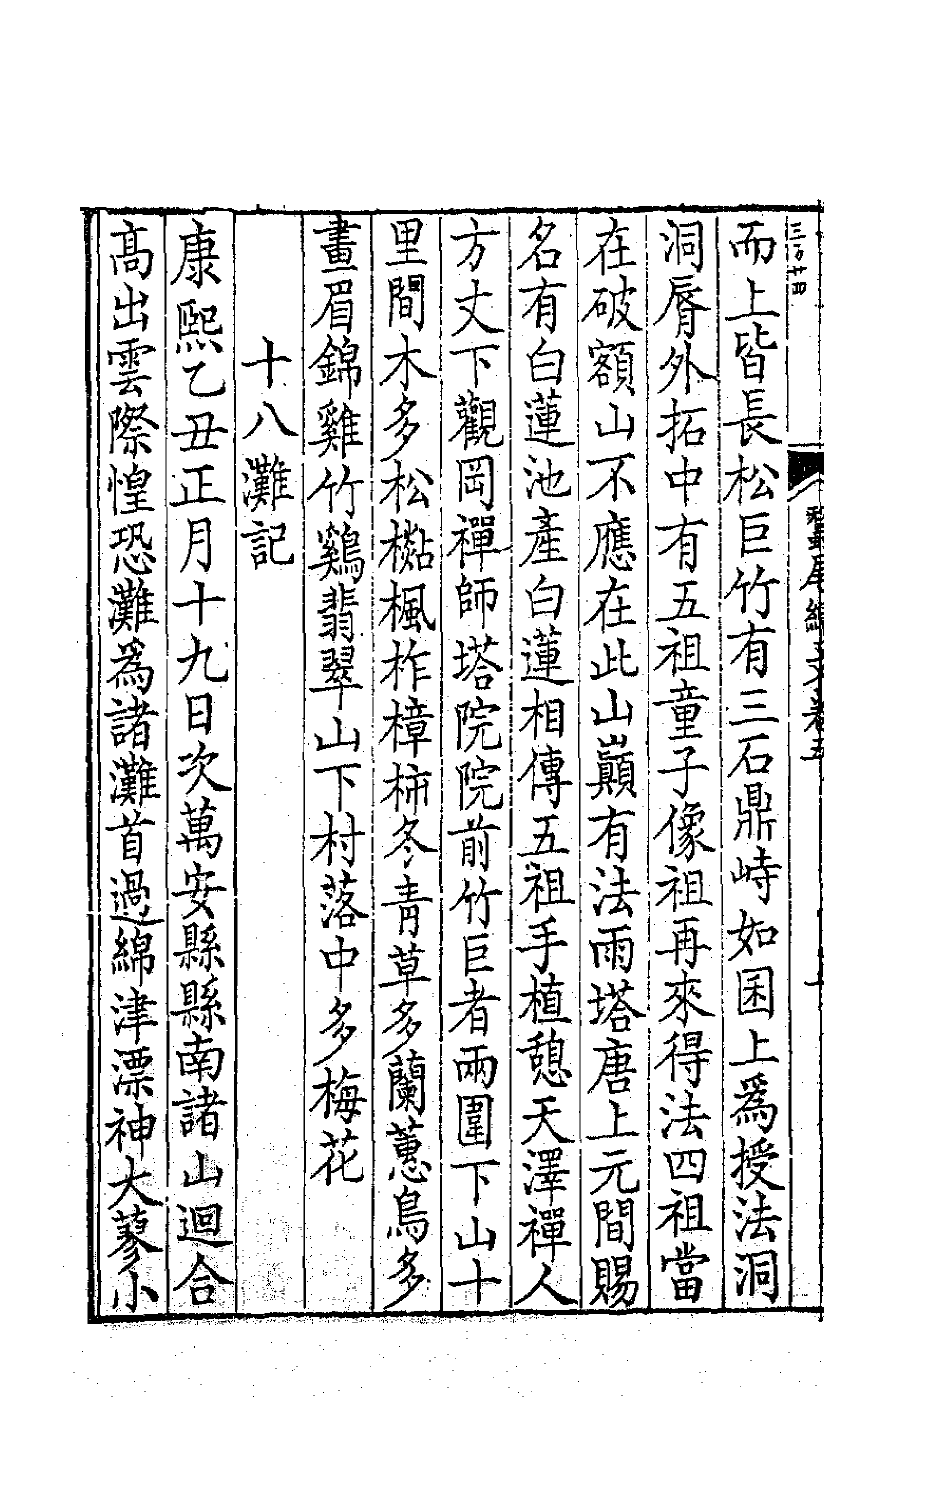 三百廿四
蠶尾續文卷五
而上皆長松巨竹有三石鼎峙如困上爲授法洞
洞脣外拓中有五祖童子像祖再來得法四祖當
在破額山不應在此山巔有法雨塔唐上元間賜
名有白蓮池產白蓮相傳五祖手植憩天澤禪人
方丈下觀岡禪師塔院院前竹巨者兩圍下山十
里間木多松檆楓柞樟柿冬青草多蘭蕙鳥多
畫眉錦雞竹鷄翡翠山下村落中多梅花
十八灘記
康熙乙丑正月十九日次萬安縣縣南諸山迴合
高出雲際惶恐灘爲諸灘首過綿津漂神大蓼小